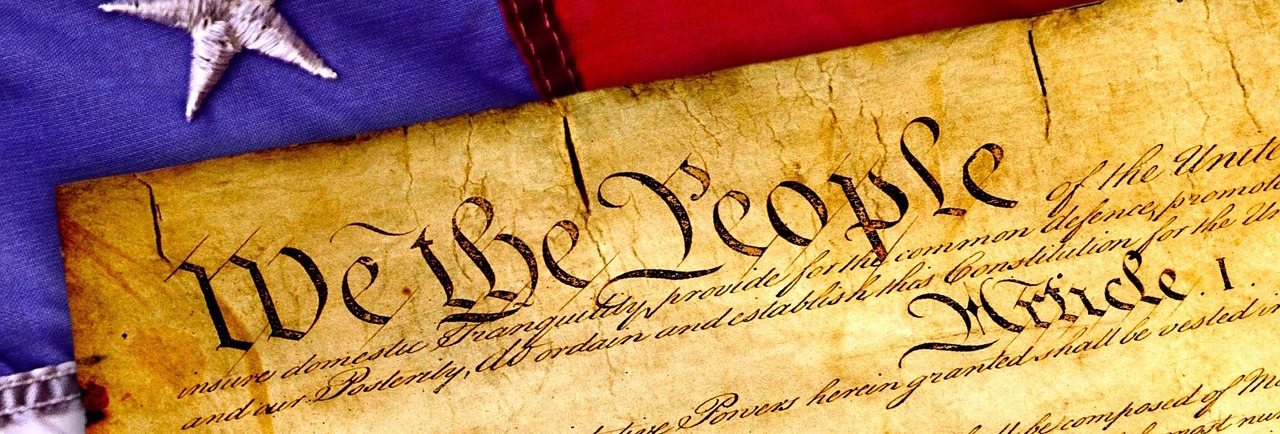 We the People of the Unite
insure domestic Tranquility, provide for the common defence, promote
and our Posterity, do ordain and establish this Constitution for the Un
Article. I.
tive Powers herein granted shall be vested in
be composed of Me
most num